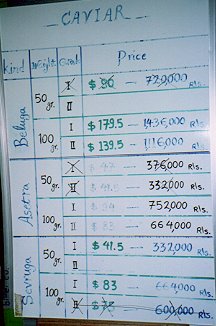 CAVIAR
Kind Weight Grade Price
Beluga
50 gr. I $ 90 — 720,000 Rls.
II
100 gr. I $ 179.5 — 1436,000 Rls.
II $ 139.5 — 1116,000 Rls.
Asetra
50 gr. I $ 47 — 376,000 Rls.
II $ 41.5 — 332,000 Rls.
100 gr. I $ 94 — 752,000 Rls.
II $ 83 — 664,000 Rls.
Sevruga
50 gr. I $ 41.5 — 332,000 Rls.
II
100 gr. I $ 83 — 664,000 Rls.
II $ 75 — 600,000 Rls.